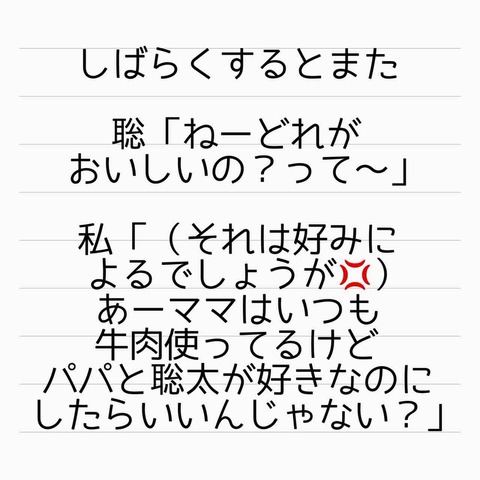 しばらくするとまた
聡「ねーどれが
おいしいの？って～」
私「（それは好みに
よるでしょうが💢）
あーママはいつも
牛肉使ってるけど
パパと聡太が好きなのに
したらいいんじゃない？」